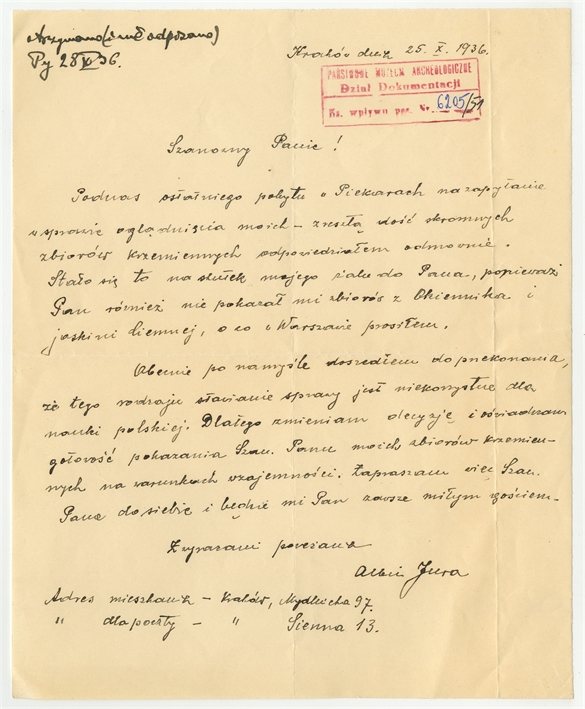 Otrzymano (i nie odpisano)
Py 28 X 36.
Kraków dnia 25. X. 1936.
PAŃSTWOWE MUZEUM ARCHEOLOGICZNE
Dział Dokumentacji
Ks. wpływu poz. Nr. 6205/51
Szanowny Panie!
Podczas ostatniego pobytu w Piekarach na zapytanie
w sprawie oglądnięcia moich – zresztą dość skromnych
zbiorów krzemiennych odpowiedziałem odmownie.
Stało się to na skutek mojego żalu do Pana, ponieważ
Pan również nie pokazał mi zbiorów z Okiennika i
jaskini Ciemnej, o co w Warszawie prosiłem.
Obecnie po namyśle doszedłem do przekonania,
że tego rodzaju stawianie sprawy jest niekorzystne dla
nauki polskiej. Dlatego zmieniam decyzję i oświadczam
gotowość pokazania Szan. Panu moich zbiorów krzemien-
nych na warunkach wzajemności. Zapraszam więc Szan.
Pana do siebie i będzie mi Pan zawsze miłym gościem.
Z wyrazami poważania
Albin Jura
Adres mieszkania – Kraków, 97.
" dla poczty – " Sienna 13.